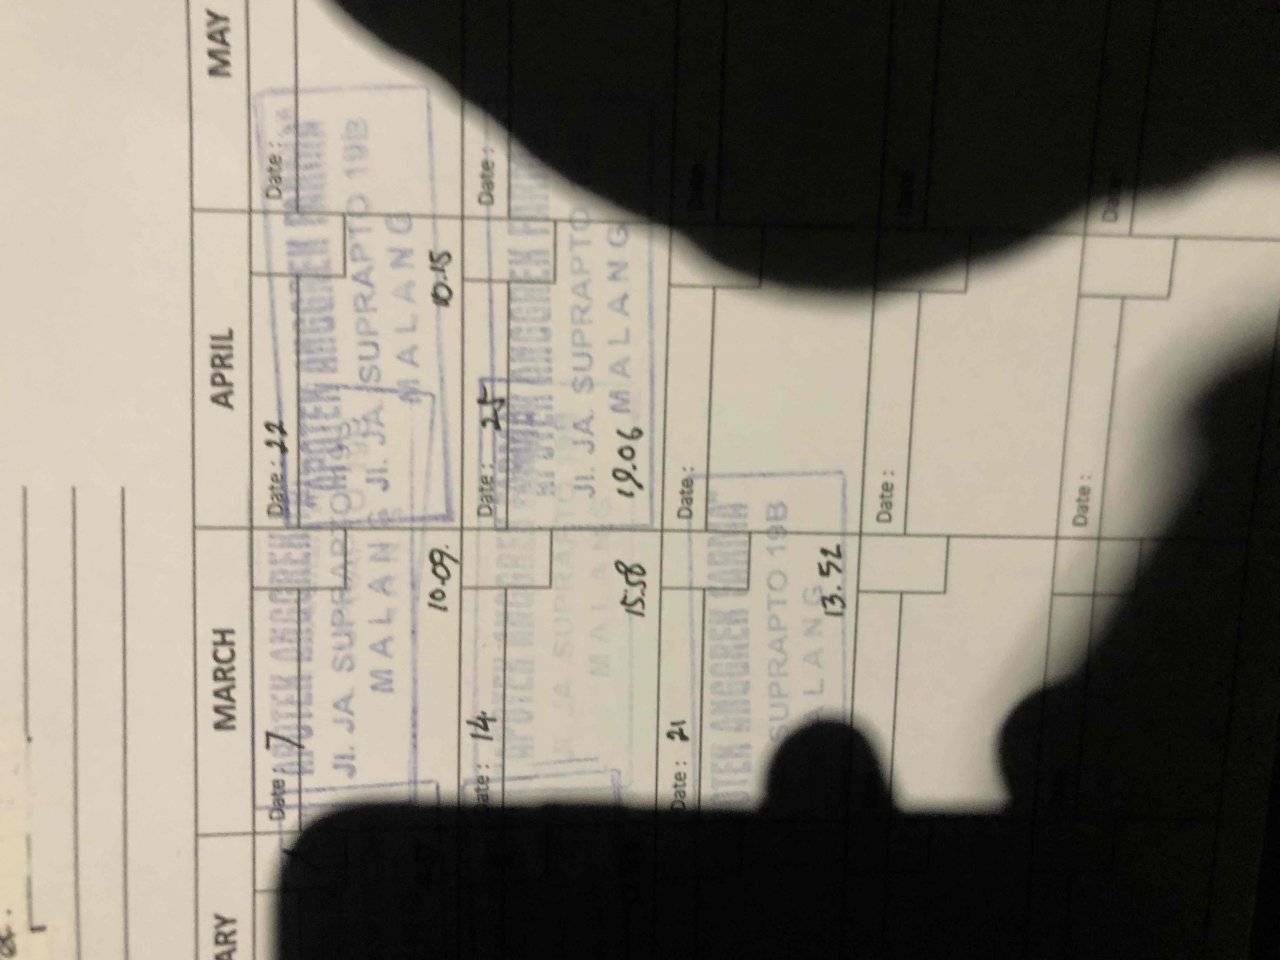 ARY
MARCH
APRIL
MAY
Date: 7
APOTEK ANGGREK
Jl. JA SUPRAPTO 19B
MALANG
10.09.
Date: 22
"APOTEK ANGGREK PARMA"
Jl. JA SUPRAPTO 19B
MALANG
10.15
Date:
Date: 14
APOTEK ANGGREK
JA SUPRAPTO
MALANG
15.58
Date: 25
APOTEK ANGGREK
Jl. JA. SUPRAPTO
MALANG
19.06
Date:
Date: 21
OTEK ANGGREK PARMA"
SUPRAPTO 19B
LANG
13.52
Date:
Date:
Date:
Date:
Date:
Date: